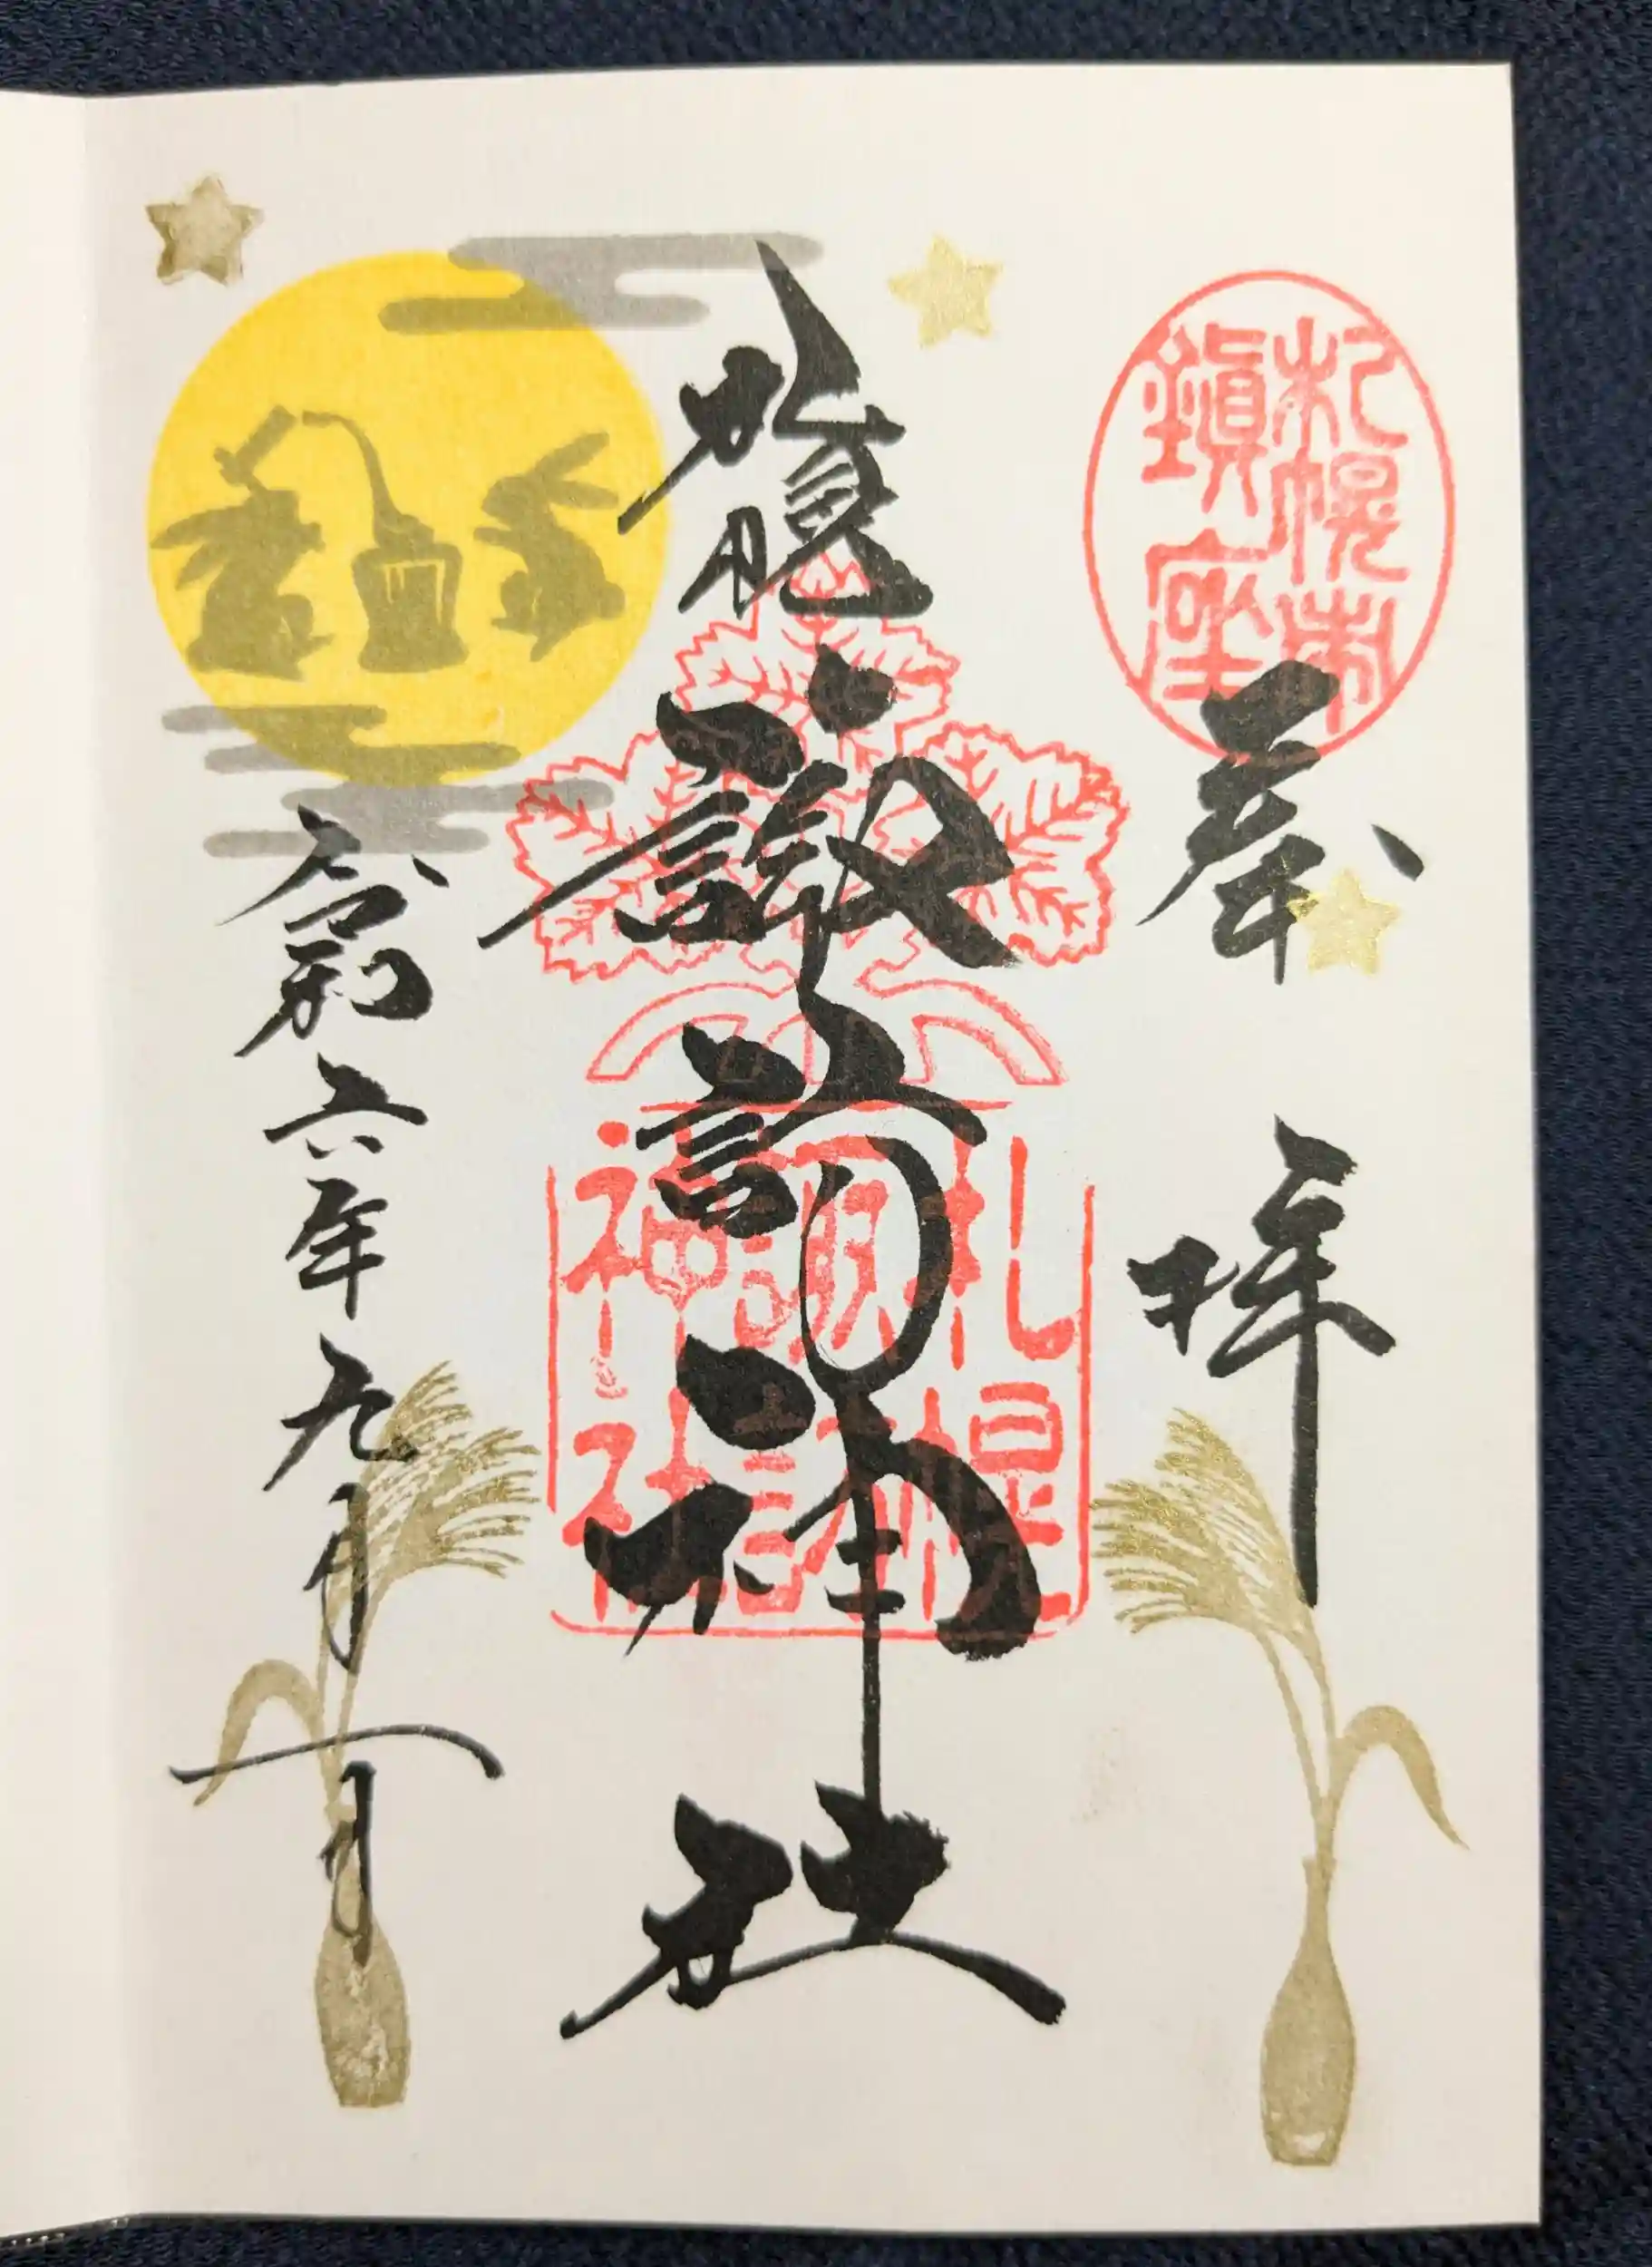 札幌市
鎭座
奉拝
札幌諏訪神社
札幌
諏訪
神社
令和六年九月一日